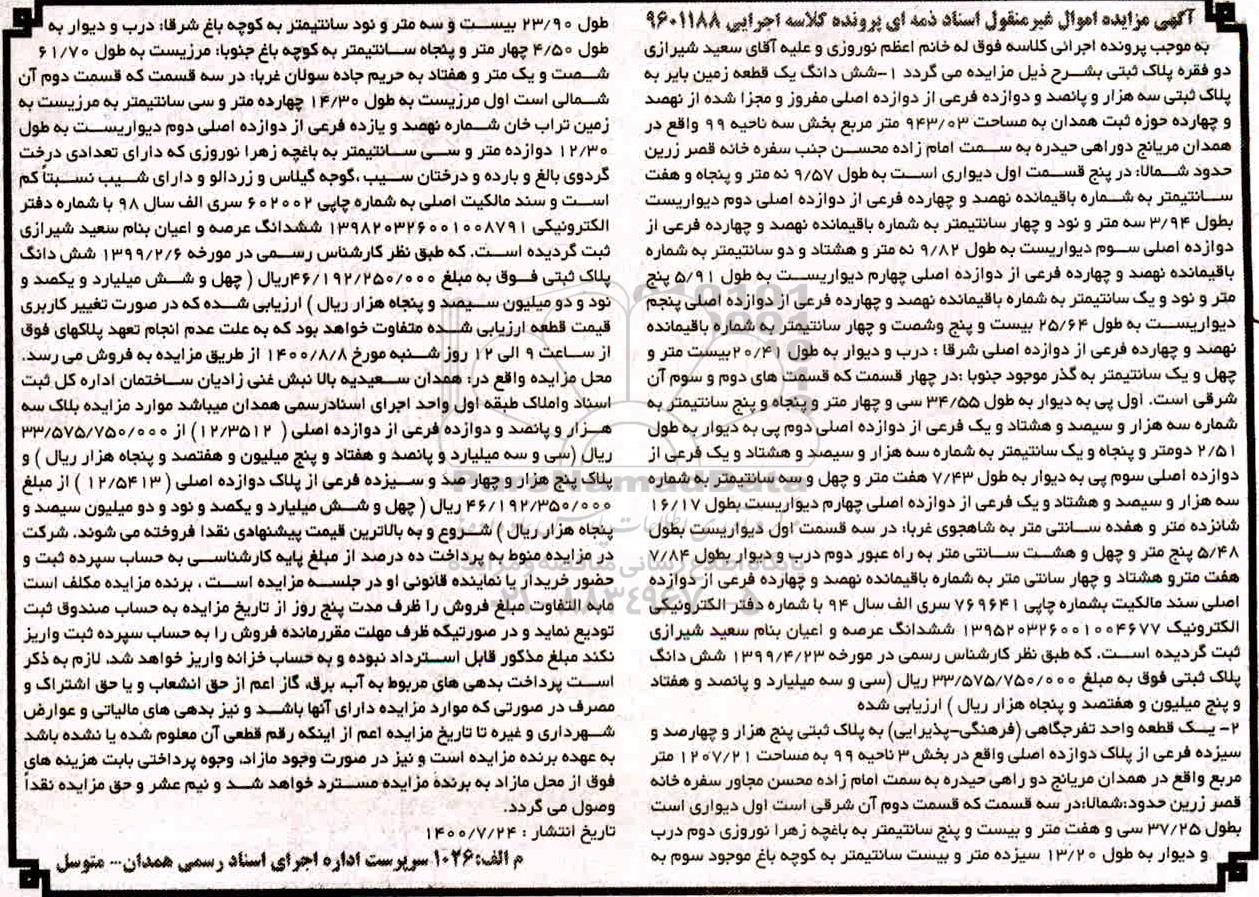 آگهی مزایده اموال غیرمنقول اسناد ذمه ای پرونده کلاسه اجرایی ۹۶۰۱۱۸۸
به موجب پرونده اجرائی کلاسه فوق له خانم اعظم نوروزی و علیه آقای سعید شیرازی
دو فقره پلاک ثبتی بشرح ذیل مزایده می گردد ۱-شش دانگ یک قطعه زمین بایر به
پلاک ثبتی سه هزار و پانصد و دوازده فرعی از دوازده اصلی مفروز و مجزا شده از نهصد
و چهارده حوزه ثبت همدان به مساحت ۹۴۳/۰۳ متر مربع بخش سه ناحیه ۹۹ واقع در
همدان مریانج دوراهی حیدره به سمت امام زاده محسن جنب سفره خانه قصر زرین
حدود شمالا: در پنج قسمت اول دیواری است به طول ۹/۵۷ نه متر و پنجاه و هفت
سانتیمتر به شماره باقیمانده نهصد و چهارده فرعی از دوازده اصلی دوم دیواریست
بطول ۳/۹۴ سه متر و نود و چهار سانتیمتر به شماره باقیمانده نهصد و چهارده فرعی از
دوازده اصلی سوم دیواریست به طول ۹/۸۲ نه متر و هشتاد و دو سانتیمتر به شماره
باقیمانده نهصد و چهارده فرعی از دوازده اصلی چهارم دیواریست به طول ۵/۹۱ پنج
متر و نود و یک سانتیمتر به شماره باقیمانده نهصد و چهارده فرعی از دوازده اصلی پنجم
دیواریست به طول ۲۵/۶۴ بیست و پنج وشصت و چهار سانتیمتر به شماره باقیمانده
نهصد و چهارده فرعی از دوازده اصلی شرقا : درب و دیوار به طول ۲۰/۴۱بیست متر و
چهل و یک سانتیمتر به گذر موجود جنوبا :در چهار قسمت که قسمت های دوم و سوم آن
شرقی است. اول پی به دیوار به طول ۳۴/۵۵ سی و چهار متر و پنجاه و پنج سانتیمتر به
شماره سه هزار و سیصد و هشتاد و یک فرعی از دوازده اصلی دوم پی به دیوار به طول
۲/۵۱ دومتر و پنجاه و یک سانتیمتر به شماره سه هزار و سیصد و هشتاد و یک فرعی از
دوازده اصلی سوم پی به دیوار به طول ۷/۴۳ هفت متر و چهل و سه سانتیمتر به شماره
سه هزار و سیصد و هشتاد و یک فرعی از دوازده اصلی چهارم دیواریست بطول ۱۶/۱۷
شانزده متر و هفده سانتی متر به شاهجوی غربا: در سه قسمت اول دیواریست بطول
۵/۴۸ پنج متر و چهل و هشت سانتی متر به راه عبور دوم درب و دیوار بطول ۷/۸۴
هفت مترو هشتاد و چهار سانتی متر به شماره باقیمانده نهصد و چهارده فرعی از دوازده
اصلی سند مالکیت بشماره چاپی ۷۶۹۶۴۱ سری الف سال ۹۴ با شماره دفتر الکترونیکی
الکترونیک ۱۳۹۵۲۰۳۲۶۰۰۱۰۰۴۶۷۷ ششدانگ عرصه و اعیان بنام سعید شیرازی
ثبت گردیده است. که طبق نظر کارشناس رسمی در مورخه ۱۳۹۹/۴/۲۳ شش دانگ
پلاک ثبتی فوق به مبلغ ۳۳/۵۷۵/۷۵۰/۰۰۰ ریال (سی و سه میلیارد و پانصد و هفتاد
و پنج میلیون و هفتصد و پنجاه هزار ریال ) ارزیابی شده
۲- یک قطعه واحد تفرجگاهی (فرهنگی-پذیرایی) به پلاک ثبتی پنج هزار و چهارصد و
سیزده فرعی از پلاک دوازده اصلی واقع در بخش ۳ ناحیه ۹۹ به مساحت ۱۲۰۷/۲۱ متر
مربع واقع در همدان مریانج دو راهی حیدره به سمت امام زاده محسن مجاور سفره خانه
قصر زرین حدود:شمالا:در سه قسمت که قسمت دوم آن شرقی است اول دیواری است
بطول ۳۷/۲۵ سی و هفت متر و بیست و پنج سانتیمتر به باغچه زهرا نوروزی دوم درب
و دیوار به طول ۱۳/۲۰ سیزده متر و بیست سانتیمتر به کوچه باغ موجود سوم به
طول ۲۳/۹۰ بیست و سه متر و نود سانتیمتر به کوچه باغ شرقا: درب و دیوار به
طول ۴/۵۰ چهار متر و پنجاه سانتیمتر به کوچه باغ جنوبا: مرزیست به طول ۶۱/۷۰
شصت و یک متر و هفتاد به حریم جاده سولان غربا: در سه قسمت که قسمت دوم آن
شمالی است اول مرزیست به طول ۱۴/۳۰ چهارده متر و سی سانتیمتر به مرزیست به
زمین تراب خان شماره نهصد و یازده فرعی از دوازده اصلی دوم دیواریست به طول
۱۲/۳۰ دوازده متر و سی سانتیمتر به باغچه زهرا نوروزی که دارای تعدادی درخت
گردوی بالغ و بارده و درختان سیب ،گوجه گیلاس و زردالو و دارای شیب نسبتاً کم
است و سند مالکیت اصلی به شماره چاپی ۶۰۲۰۰۲ سری الف سال ۹۸ با شماره دفتر
الکترونیکی ۱۳۹۸۲۰۳۲۶۰۰۱۰۰۸۷۹۱ ششدانگ عرصه و اعیان بنام سعید شیرازی
ثبت گردیده است. که طبق نظر کارشناس رسمی در مورخه ۱۳۹۹/۲/۶ شش دانگ
پلاک ثبتی فوق به مبلغ ۴۶/۱۹۲/۲۵۰/۰۰۰ریال ( چهل و شش میلیارد و یکصد و
نود و دو میلیون سیصد و پنجاه هزار ریال ) ارزیابی شده که در صورت تغییر کاربری
قیمت قطعه ارزیابی شده متفاوت خواهد بود که به علت عدم انجام تعهد پلاکهای فوق
از ساعت ۹ الی ۱۲ روز شنبه مورخ ۱۴۰۰/۸/۸ از طریق مزایده به فروش می رسد.
محل مزایده واقع در: همدان سعیدیه بالا نبش غنی زادیان ساختمان اداره کل ثبت
اسناد واملاک طبقه اول واحد اجرای اسنادرسمی همدان میباشد موارد مزایده بلاک سه
هزار و پانصد و دوازده فرعی از دوازده اصلی ( ۱۲/۳۵۱۲) از ۳۳/۵۷۵/۷۵۰/۰۰۰
ریال (سی و سه میلیارد و پانصد و هفتاد و پنج میلیون و هفتصد و پنجاه هزار ریال ) و
پلاک پنج هزار و چهار صد و سیزده فرعی از پلاک دوازده اصلی ( ۱۲/۵۴۱۳ ) از مبلغ
۴۶/۱۹۲/۳۵۰/۰۰۰ ریال ( چهل و شش میلیارد و یکصد و نود و دو میلیون سیصد و
پنجاه هزار ریال ) شروع و به بالاترین قیمت پیشنهادی نقدا فروخته می شوند. شرکت
در مزایده منوط به پرداخت ده درصد از مبلغ پایه کارشناسی به حساب سپرده ثبت و
حضور خریدار یا نماینده قانونی او در جلسه مزایده است ، برنده مزایده مکلف است
مابه التفاوت مبلغ فروش را ظرف مدت پنج روز از تاریخ مزایده به حساب صندوق ثبت
تودیع نماید و در صورتیکه ظرف مهلت مقررمانده فروش را به حساب سپرده ثبت واریز
نکند مبلغ مذکور قابل استرداد نبوده و به حساب خزانه واریز خواهد شد، لازم به ذکر
است پرداخت بدهی های مربوط به آب، برق، گاز اعم از حق انشعاب و یا حق اشتراک و
مصرف در صورتی که موارد مزایده دارای آنها باشد و نیز بدهی های مالیاتی و عوارض
شهرداری و غیره تا تاریخ مزایده اعم از اینکه رقم قطعی آن معلوم شده یا نشده باشد
به عهده برنده مزایده است و نیز در صورت وجود مازاد، وجوه پرداختی بابت هزینه های
فوق از محل مازاد به برنده مزایده مسترد خواهد شد و نیم عشر و حق مزایده نقداً
وصول می گردد.
تاریخ انتشار : ۱۴۰۰/۷/۲۴
م الف:۱۰۲۶ سرپرست اداره اجرای اسناد رسمی همدان... متوسل
ParsNamadData
پایگاه اطلاع رسانی مناقصه و مزایده